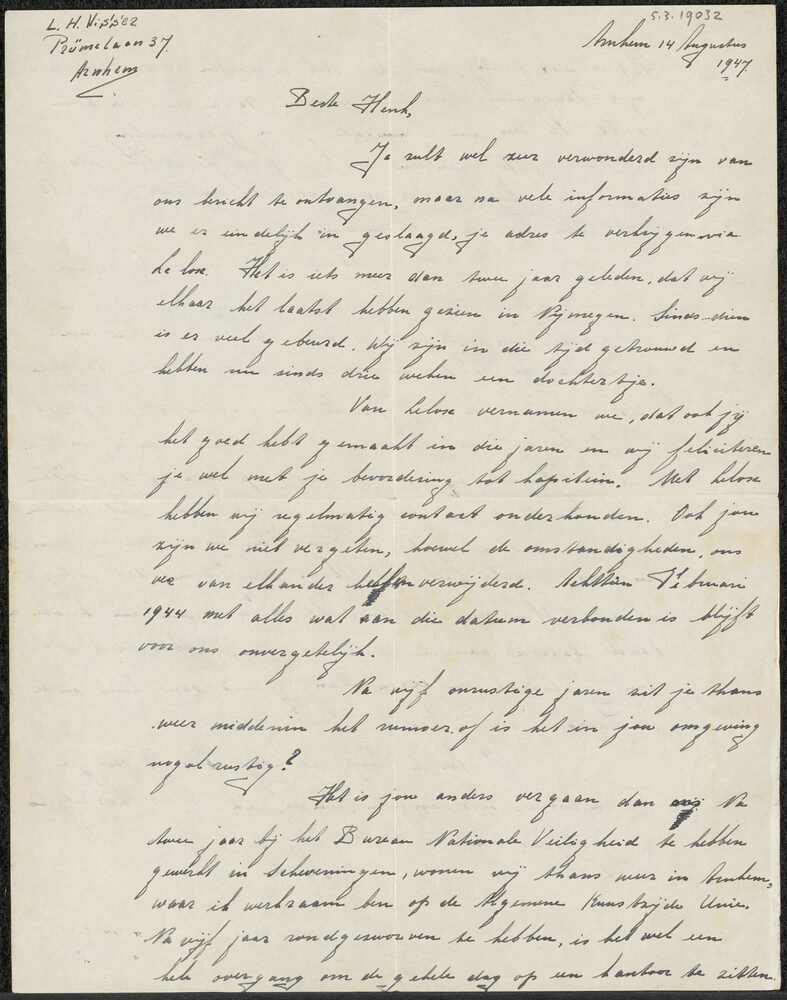 L. H. Visser
Prümelaan 37.
Arnhem
5.3.19032
Arnhem 14 Augustus
1947.
Beste Henk,
Je zult wel zeer verwonderd zijn van
ons bericht te ontvangen, maar na vele informaties zijn
we er eindelijk in geslaagd, je adres te verkrijgen via
Helose. Het is iets meer dan twee jaar geleden, dat wij
elkaar het laatst hebben gezien in Nijmegen. Sinds-dien
is er veel gebeurd. Wij zijn in die tijd getrouwd en
hebben nu sinds drie weken een dochtertje.
Van Helose vernamen we, dat ook jij
het goed hebt gemaakt in die jaren en wij feliciteren
je wel met je bevordering tot kapitein. Met Helose
hebben wij regelmatig contact onderhouden. Ook jou
zijn we niet vergeten, hoewel de omstandigheden, ons
ver van elkander hebben verwijderd. Achttien Februari
1944 met alles wat aan die datum verbonden is blijft
voor ons onvergetelijk.
Na vijf onrustige jaren zit je thans
weer middenin het rumoer of is het in jou omgeving
nogal rustig?
Het is jou anders vergaan dan mij Na
twee jaar bij het Bureau Nationale Veiligheid te hebben
gewerkt in Scheveningen, wonen wij thans weer in Arnhem,
waar ik werkzaam ben op de Algemene Kunstzijde Unie.
Na vijf jaar rondgezworven te hebben, is het wel een
hele overgang om de gehele dag op een kantoor te zitten.